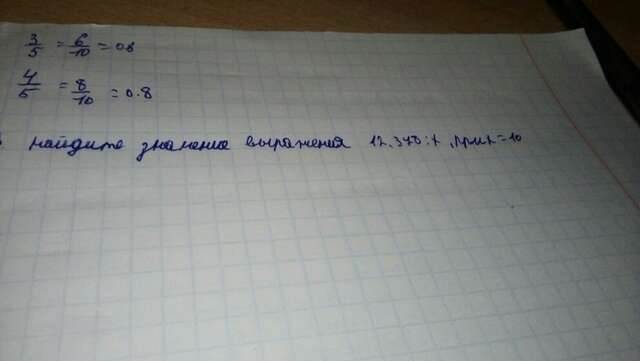 3/5 = 6/10 = 0.6
4/5 = 8/10 = 0.8
найдите значение выражения 12.378:x, при x=10